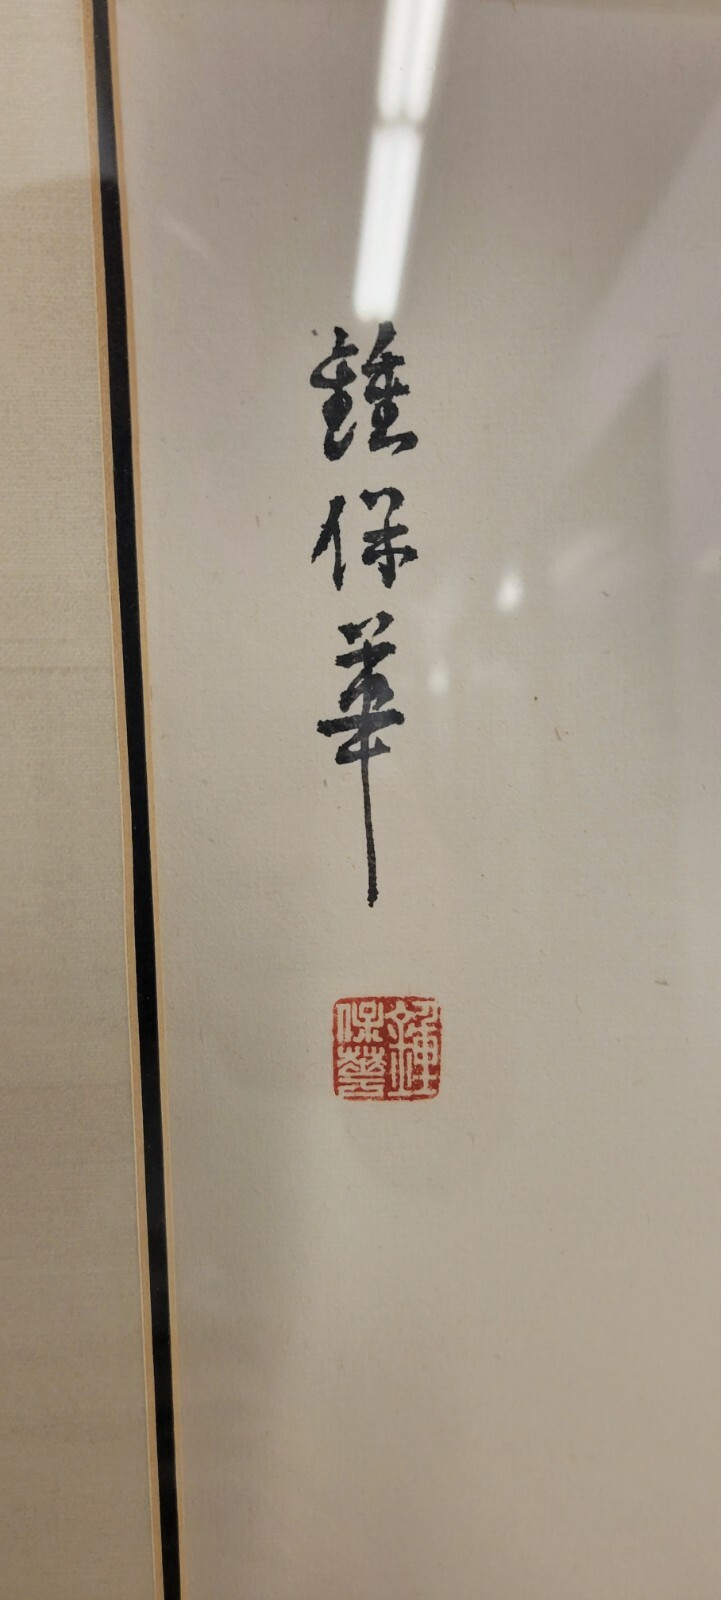 鍾保華
鍾保華